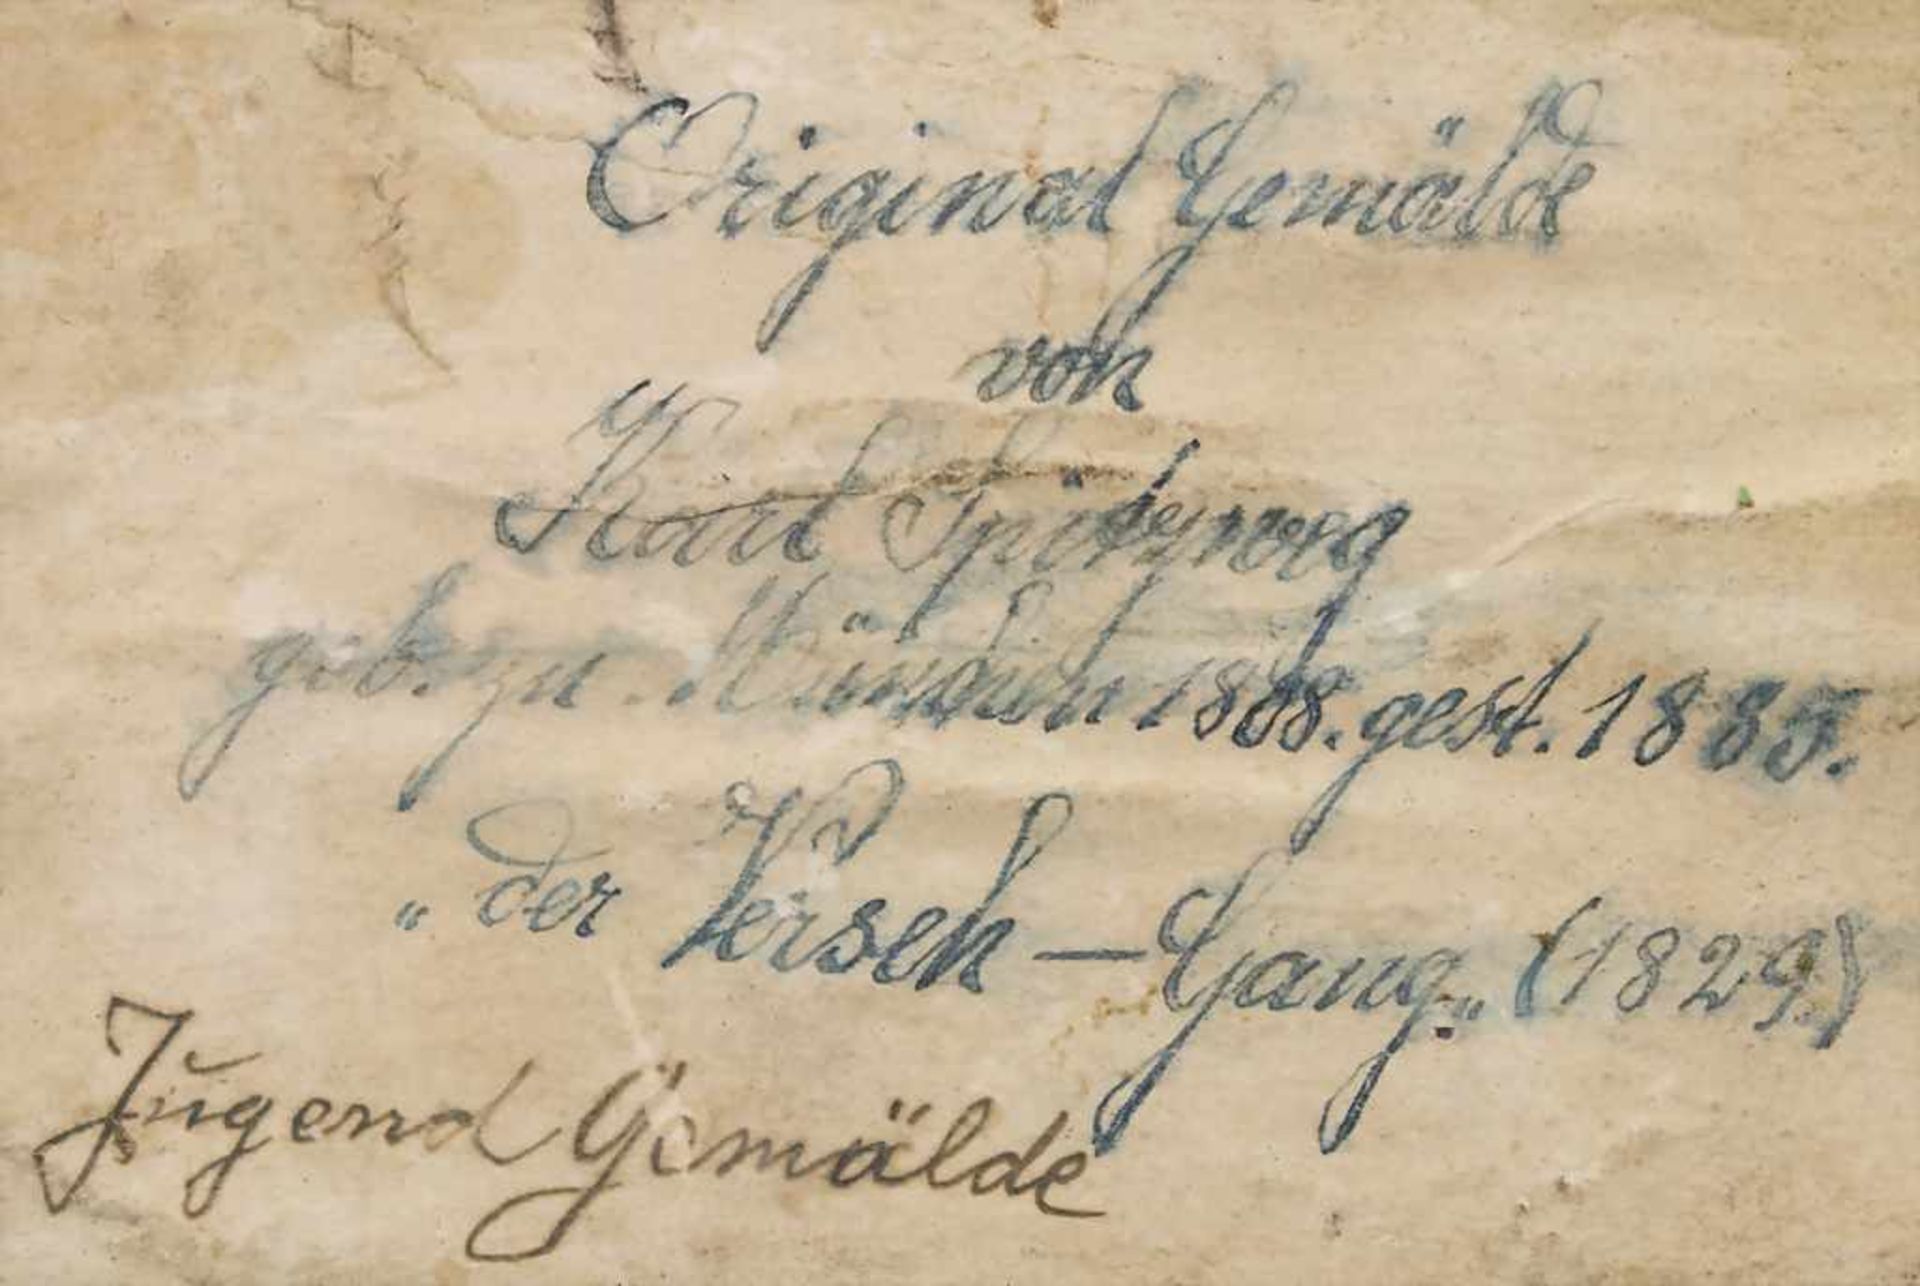 Original Gemälde
von
Karl Spitzweg
geb. zu. München 1808. gest. 1885.
„ der Verseh – Gang „ (1829)
Jugend Gemälde